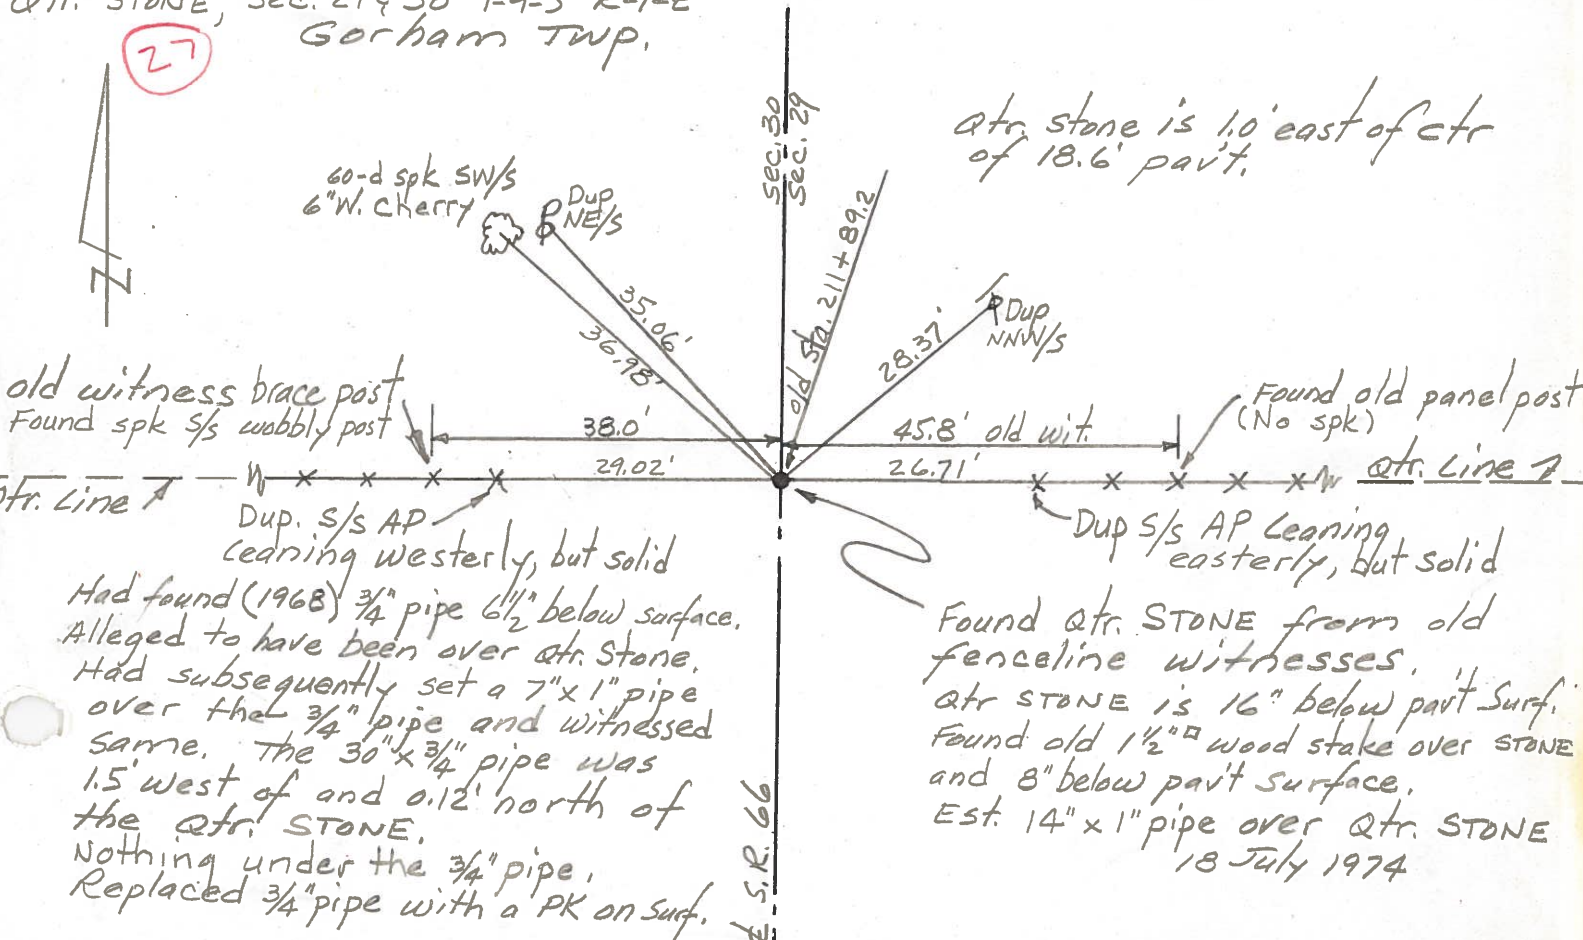 Qtr. STONE, Sec. 29 & 30 T-9-S R-1-E
Gorham Twp.
27
N
Sec. 30
Sec. 29
Qtr. Stone is 1.0' east of ctr
of 18.6' pav't.
60-d spk SW/s
6" W. Cherry
Dup
NE/S
35.06'
36.98'
old Sta. 211+89.2
28.37'
Dup
NNW/s
old witness brace post
Found spk S/s wobbly post
38.0'
45.8' old wit.
Found old panel post
(No spk)
29.02'
26.71'
Qtr. Line
Qtr. Line
Dup. S/s AP
Leaning westerly, but solid
Dup S/s AP Leaning
easterly, but solid
Had found (1968) 3/4" pipe 6 1/2" below surface.
Alleged to have been over Qtr. Stone.
Had subsequently set a 7" x 1" pipe
over the 3/4" pipe and witnessed
same. The 30" x 3/4" pipe was
1.5' west of and 0.12' north of
the Qtr. STONE.
Nothing under the 3/4" pipe.
Replaced 3/4" pipe with a PK on surf.
Found Qtr. STONE from old
fenceline witnesses.
Qtr STONE is 16" below pav't Surf.
Found old 1 1/2"□ wood stake over STONE
and 8" below pav't surface.
Est. 14" x 1" pipe over Qtr. STONE
18 July 1974
℄ S.R. 66